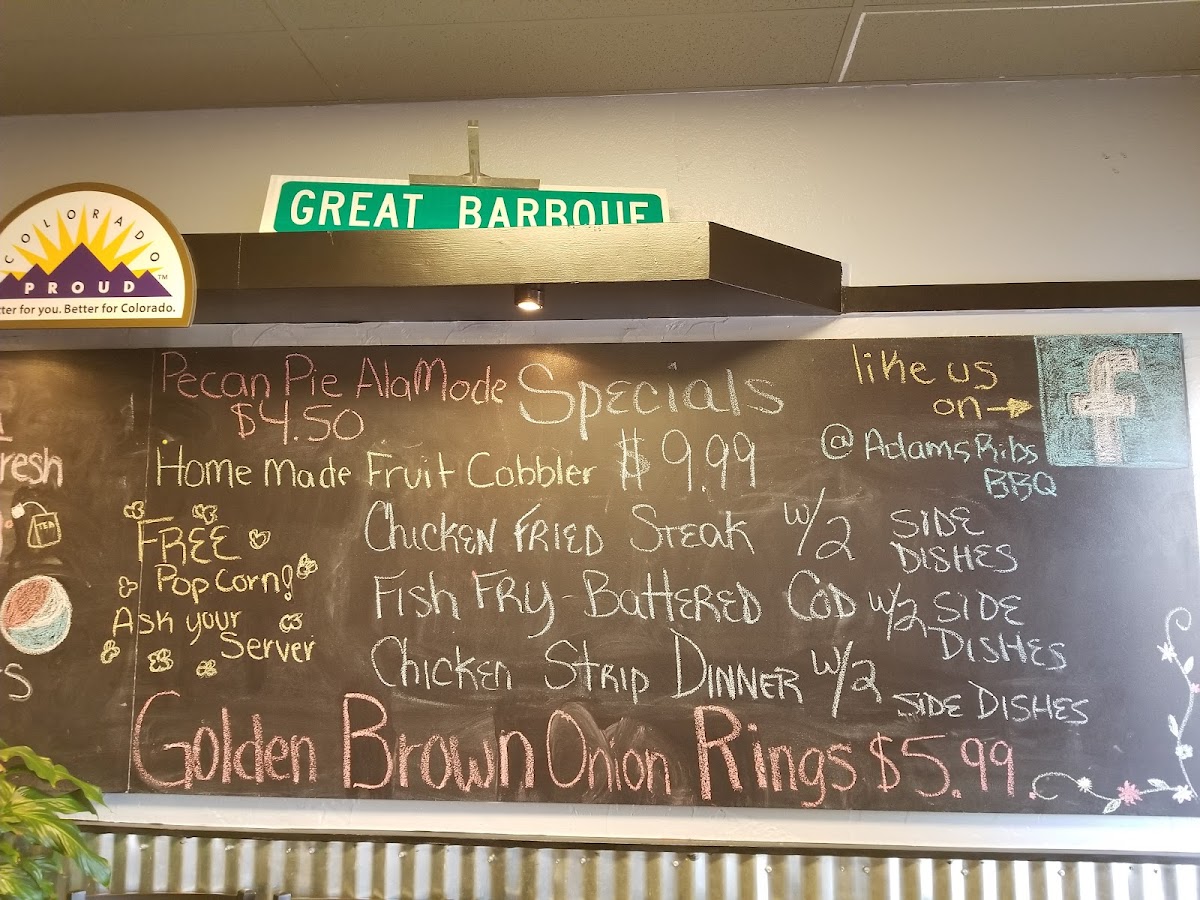 GREAT BARBQUE
COLORADO
PROUD
TM
tter for you. Better for Colorado.
Pecan Pie AlaMode
$4.50
Home Made Fruit Cobbler
Specials
$9.99
like us
on
f
@AdamsRibs
BBQ
resh
TEA
FREE
PopCorn!
Ask your
Server
Chicken Fried Steak w/2 Side
Dishes
Fish Fry - Battered Cod w/2 Side
Dishes
Chicken Strip Dinner w/2
Side Dishes
Golden Brown Onion Rings $5.99